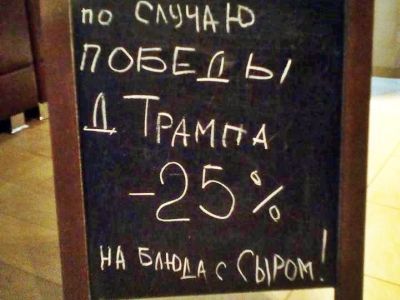 по СЛУЧАЮ
ПОБЕДЫ
Д ТРАМПА
-25%
НА БЛЮДА С СЫРОМ!